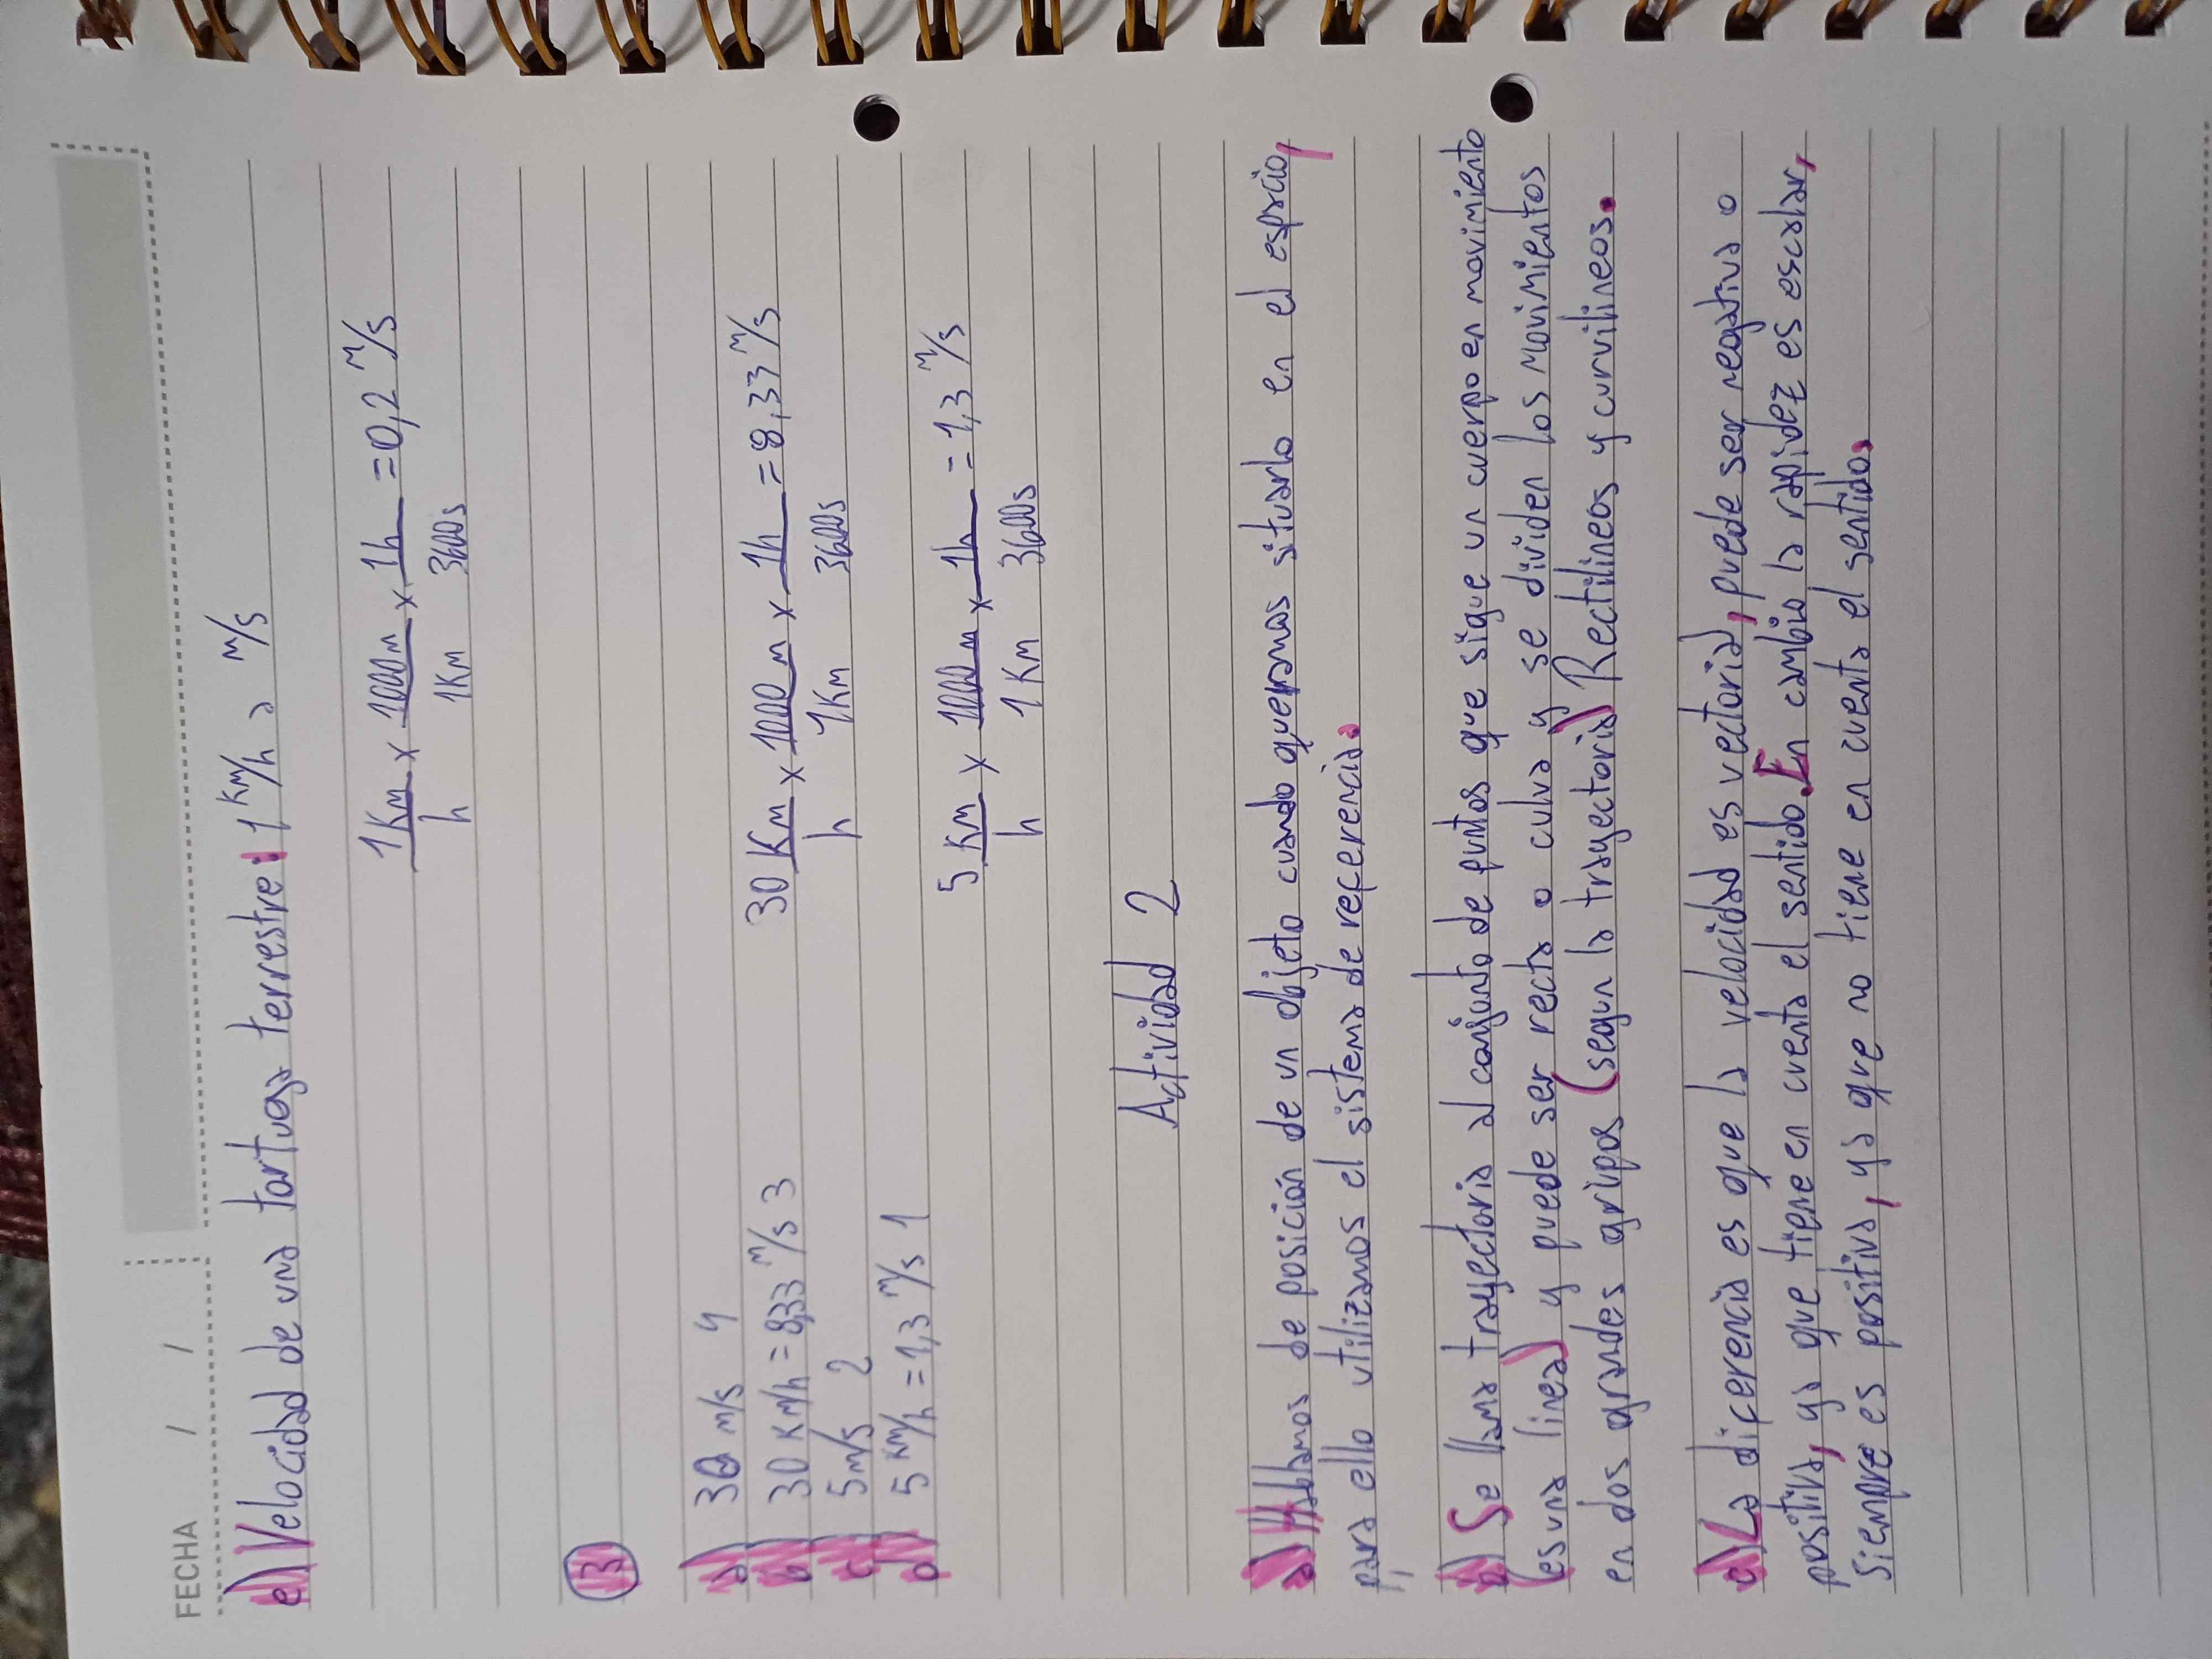 FECHA / /
e) Velocidad de una tortuga terrestre: 1 Km/h a m/s
1 Km/h x 1000m/1Km x 1h/3600s = 0,2 m/s
13
a) 30 m/s 4
b) 30 Km/h = 8,33 m/s 3
30 Km/h x 1000 m/1Km x 1h/3600s = 8,33 m/s
c) 5 m/s 2
d) 5 Km/h = 1,3 m/s 1
5 Km/h x 1000m/1Km x 1h/3600s = 1,3 m/s
Actividad 2
a) Hablamos de posición de un objeto cuando queramos situarlo en el espacio,
para ello utilizamos el sistema de referencia.
b) Se llama trayectoria al conjunto de puntos que sigue un cuerpo en movimiento
(es una linea) y puede ser recta o culva y se dividen los movimientos
en dos grandes grupos (segun la trayectoria) Rectilineos y curvilineos.
c) La diferencia es que la velocidad es vectorial, puede ser negativa o
positiva, ya que tiene en cuenta el sentido. En cambio la rapidez es escalar,
siempre es positiva, ya que no tiene en cuenta el sentido.